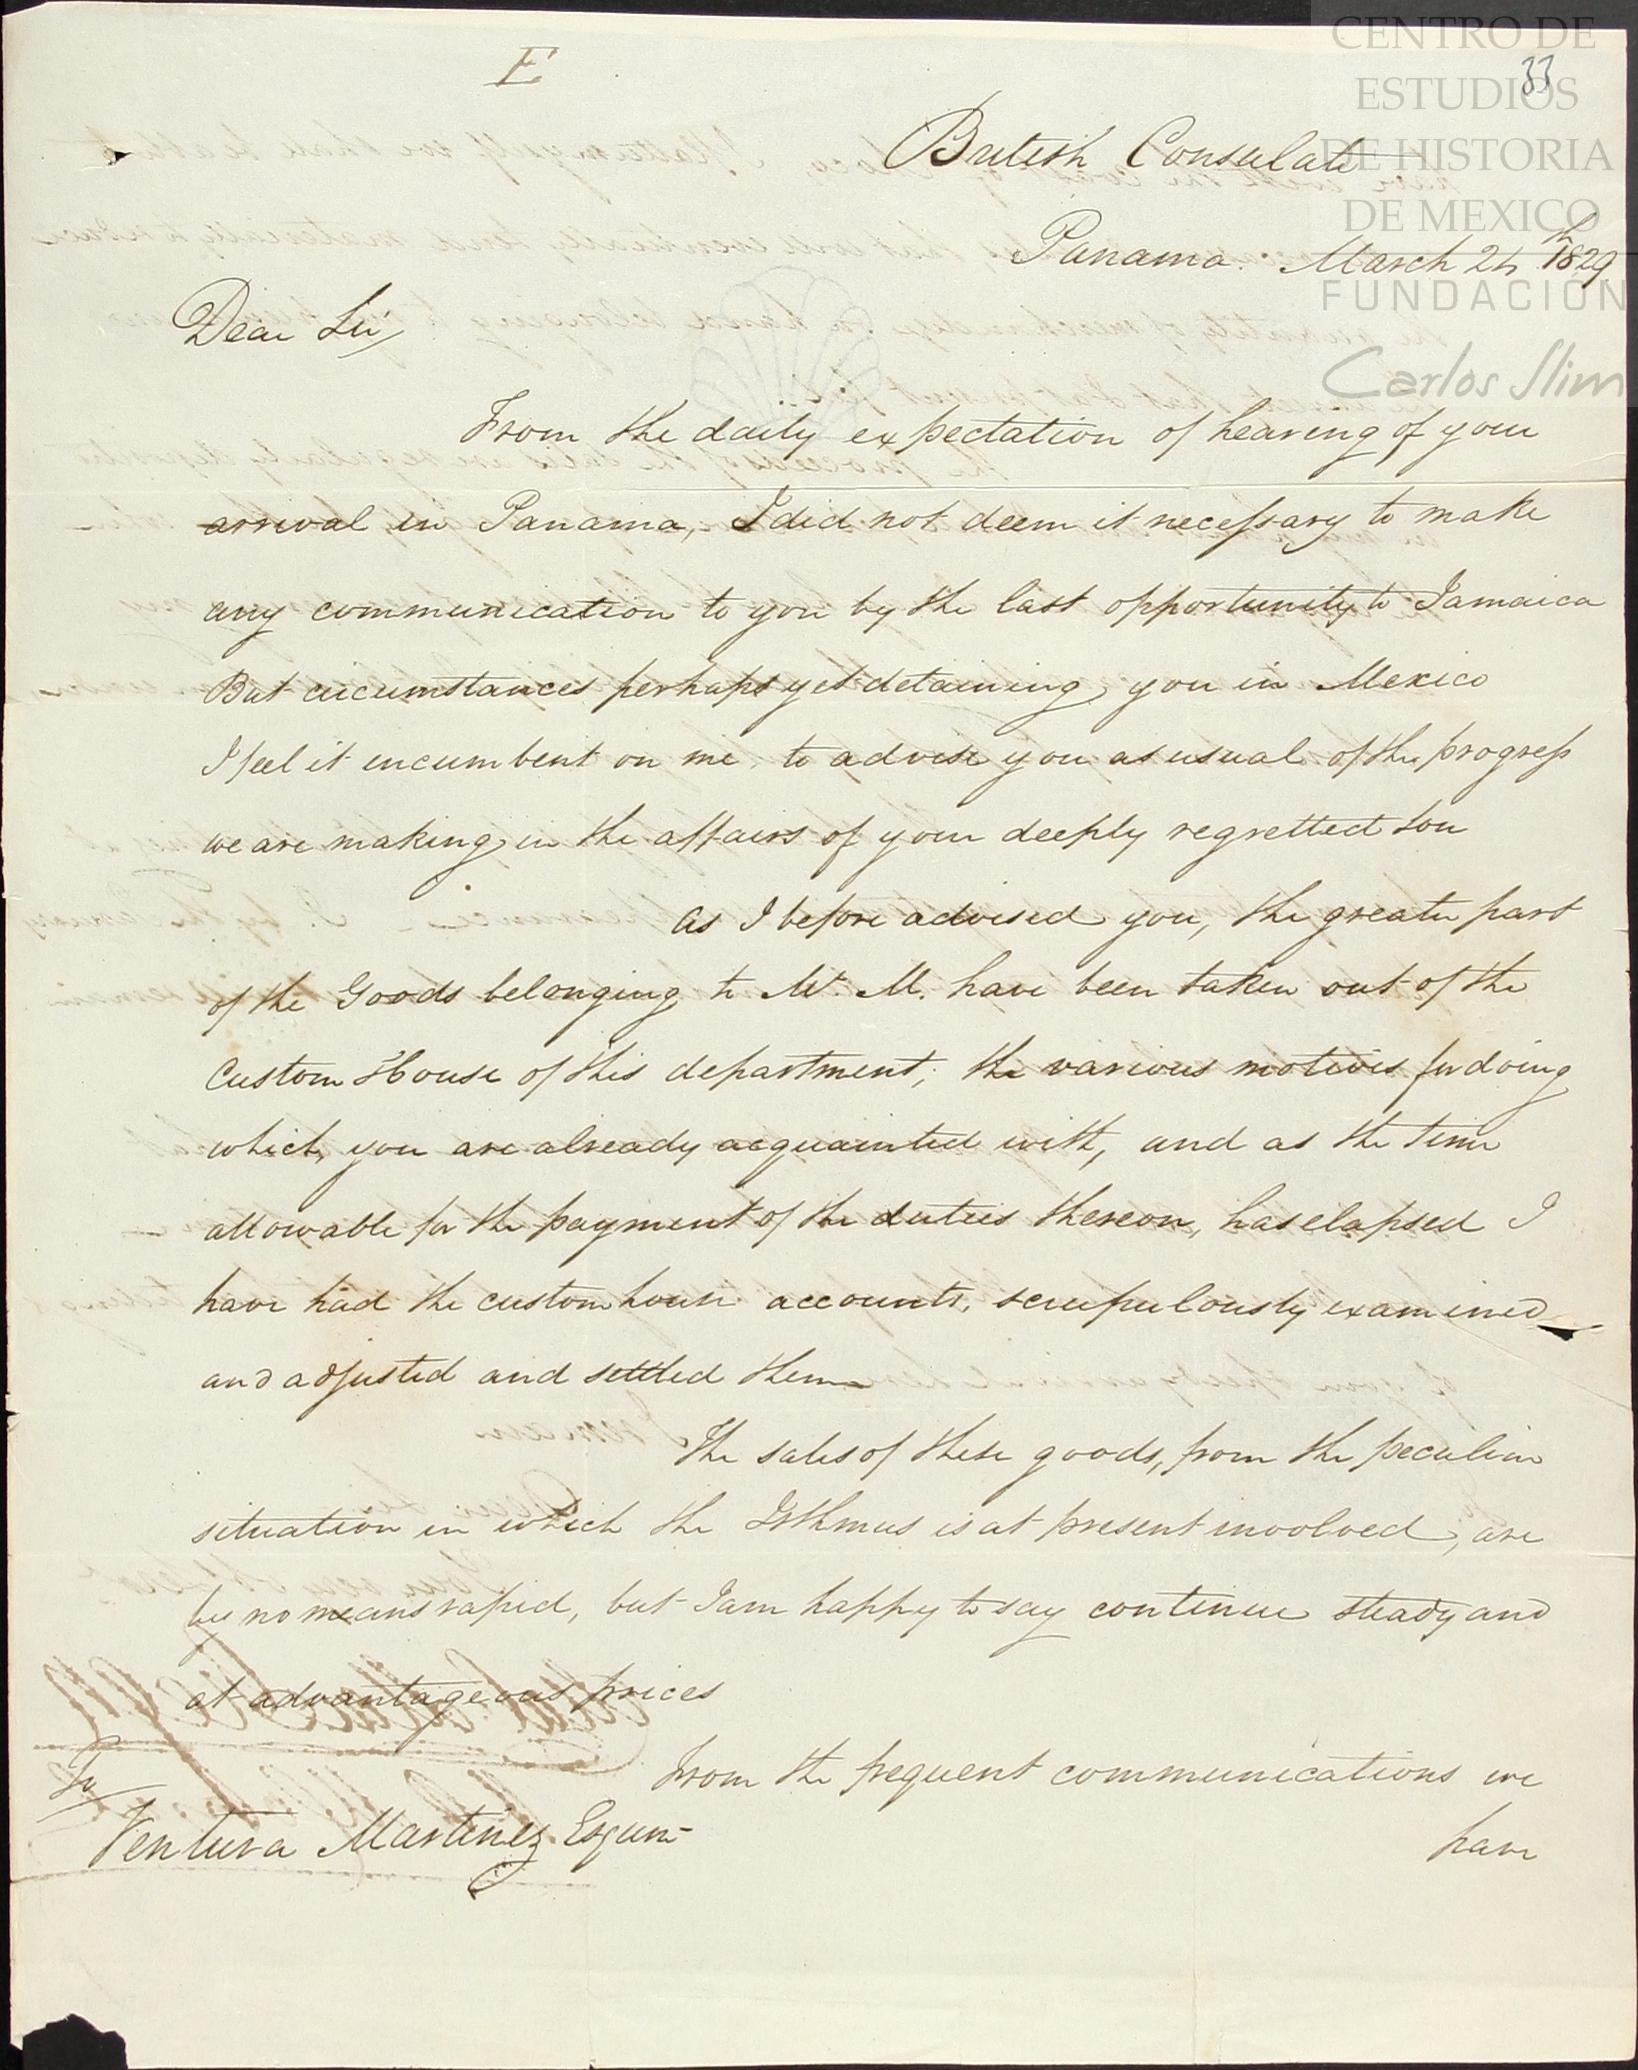 E
33
CENTRO DE
ESTUDIOS
DE HISTORIA
DE MEXICO
FUNDACIÓN
Carlos Slim
British Consulate
Panama March 24th 1829
Dear Sir,
From the daily expectation of hearing of your
arrival in Panama, I did not deem it necessary to make
any communication to you by the last opportunity to Jamaica
But circumstances perhaps yet detaining you in Mexico
I feel it incumbent on me to advise you as usual of the progress
we are making in the affairs of your deeply regretted Son
As I before advised you, the greater part
of the Goods belonging to Mr. M. have been taken out of the
Custom House of this department; the various motives for doing
which, you are already acquainted with, and as the time
allowable for the payment of the duties thereon, has elapsed I
have had the custom house accounts, scrupulously examined
and adjusted and settled them
The sales of these goods, from the peculiar
situation in which the Isthmus is at present involved, are
by no means rapid, but I am happy to say continue steady and
at advantageous prices
From the frequent communications we
have
To
Ventura Martinez Esqure